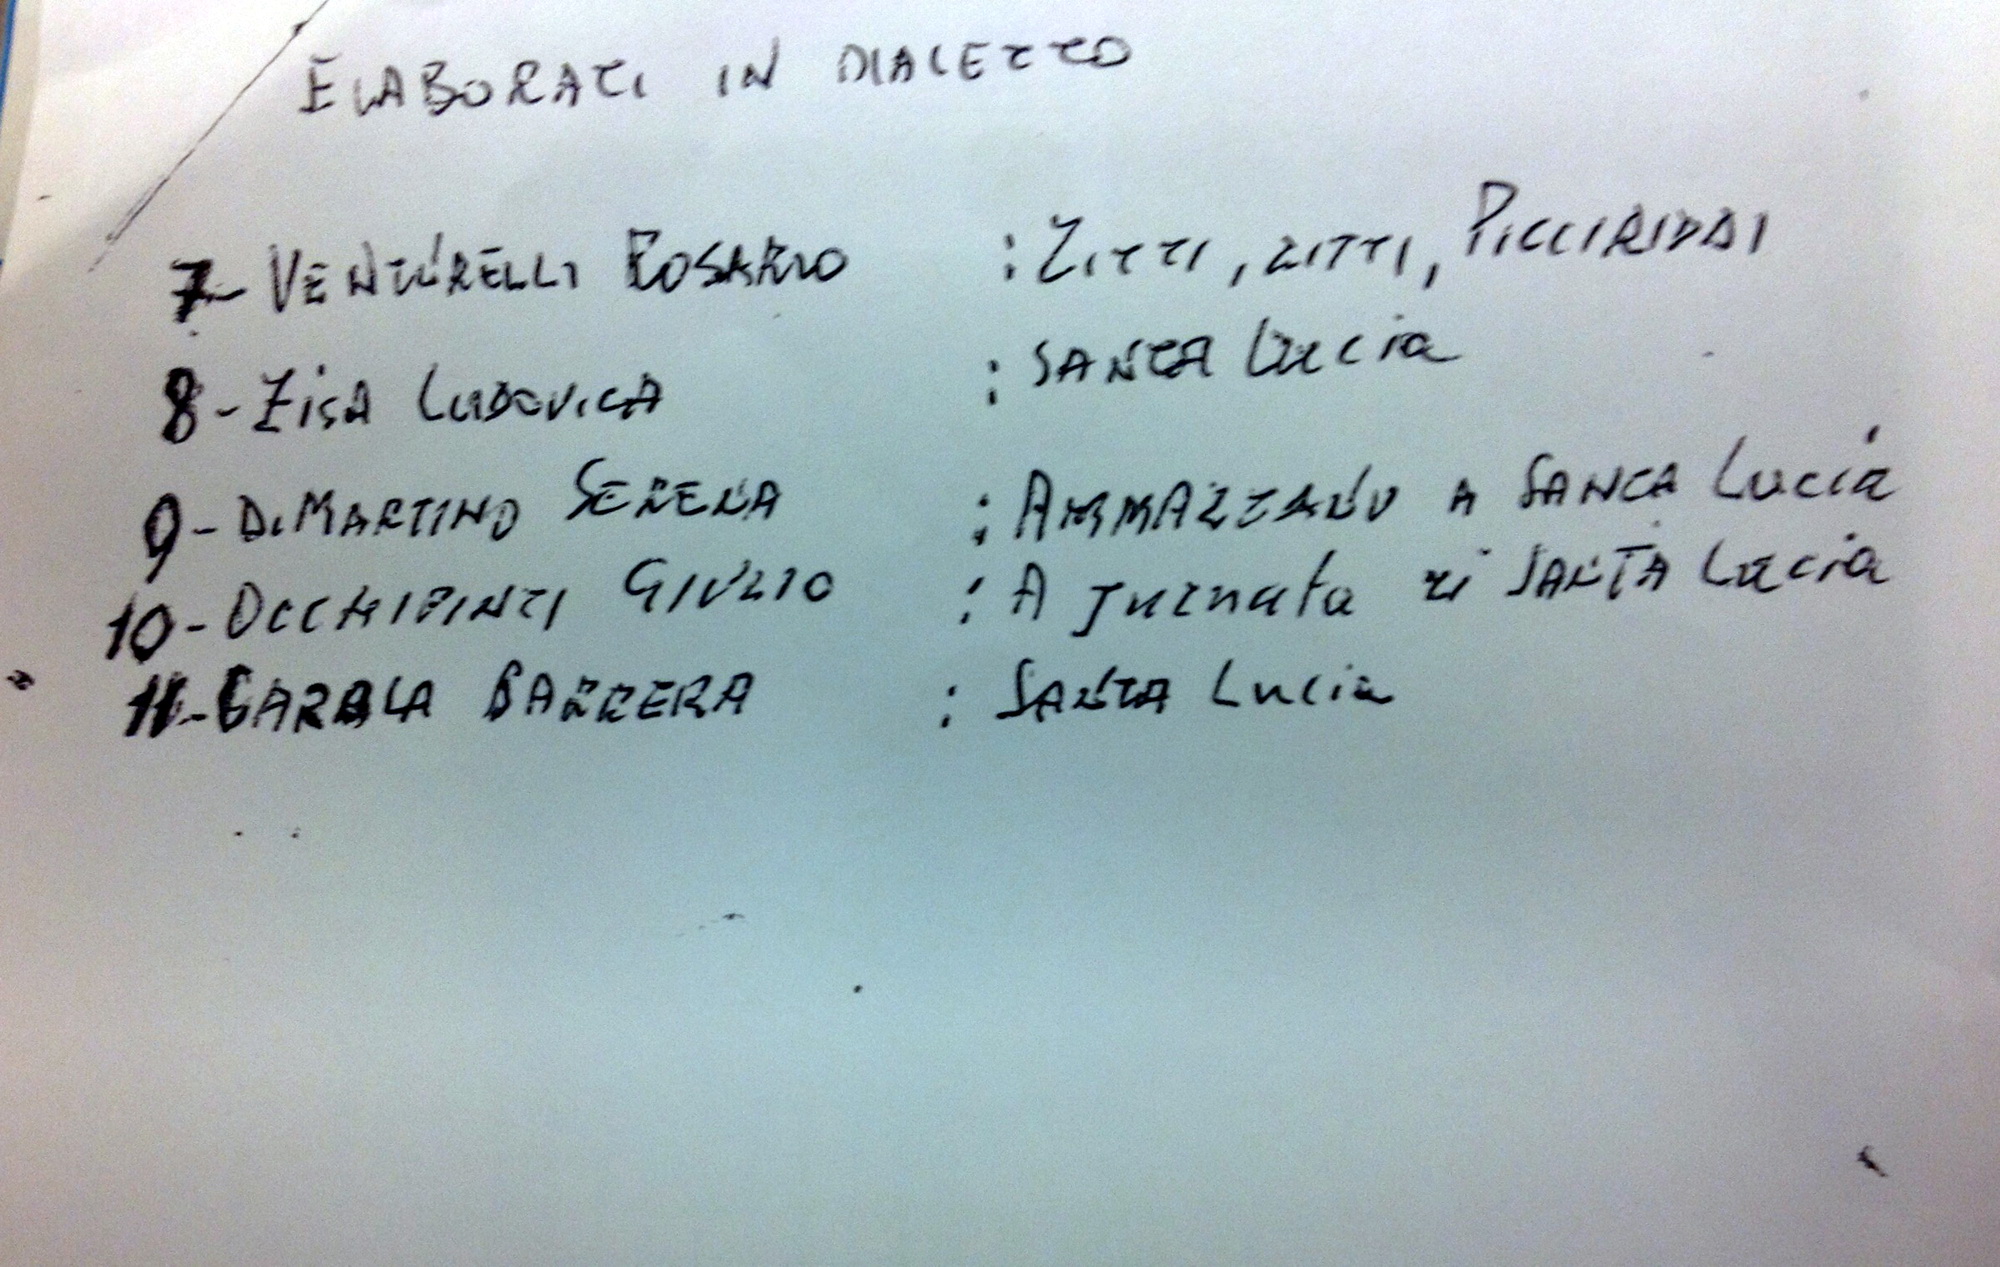 ELABORATI IN DIALETTO
7- VENTURELLI ROSARIO : ZITTI, ZITTI, PICCIRIDDI
8- ZISA LUDOVICA : SANTA Lucia
9- DI MARTINO SERENA : AMMAZZANU A SANTA Lucia
10- OCCHIPINTI GIULIO : A jurnata ri SANTA Lucia
11- CARBLA BARRERA : SANTA Lucia